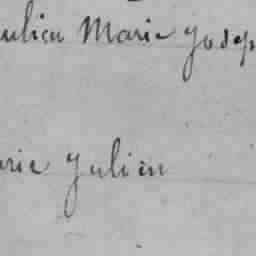 ulien Marie Josep
arie Julien